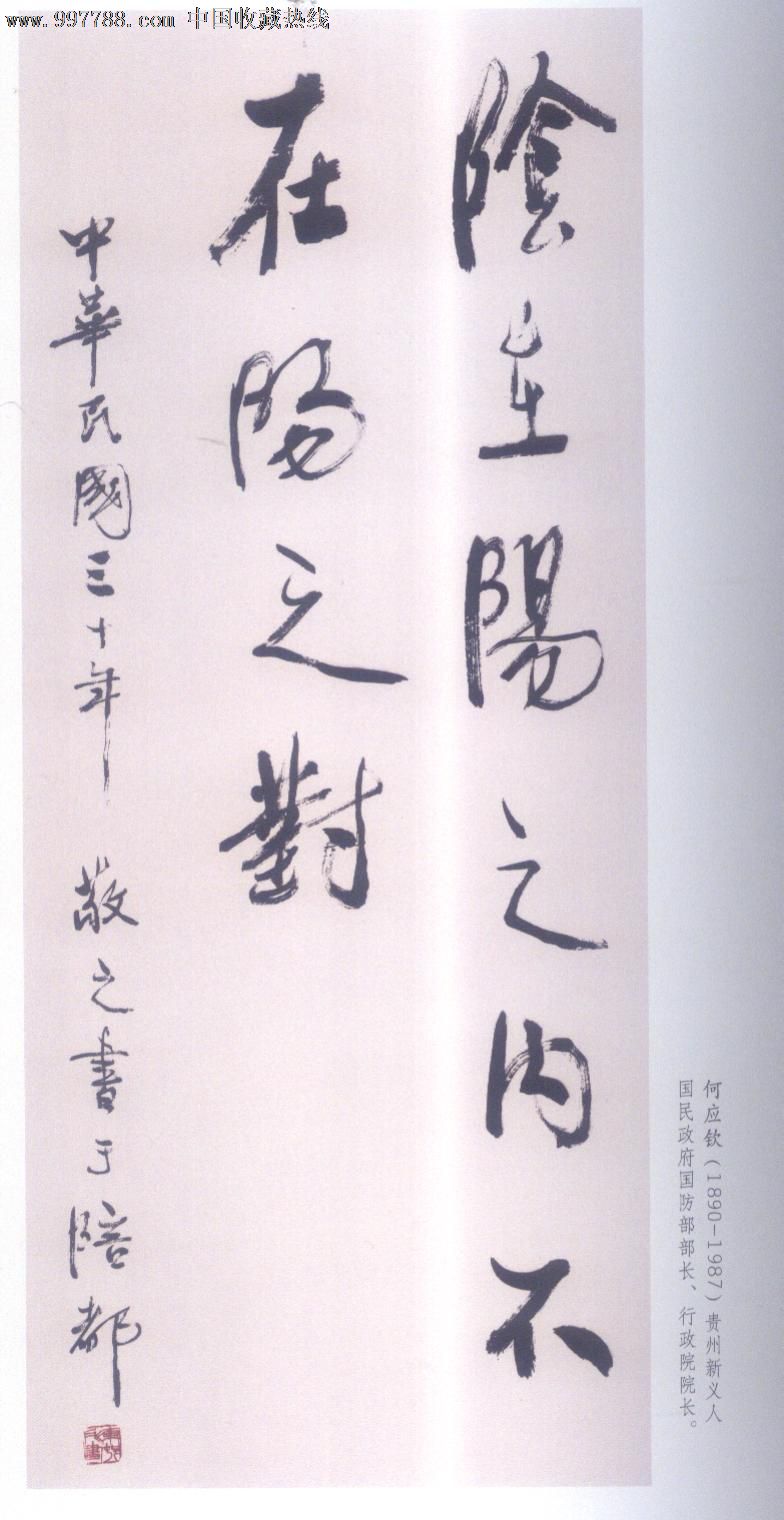 www.997788.com 中国收藏热线
陰在陽之内不
在陽之對
中華民國三十年 敬之書于陪都
何应钦（1890-1987）贵州新义人
国民政府国防部部长、行政院院长。